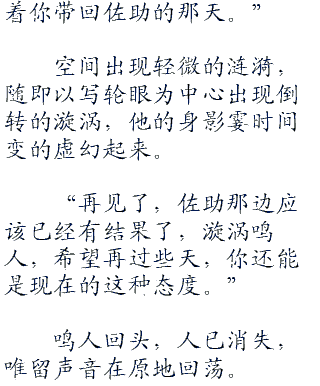 着你带回佐助的那天。”
空间出现轻微的涟漪，
随即以写轮眼为中心出现倒
转的漩涡，他的身影霎时间
变的虚幻起来。
“再见了，佐助那边应
该已经有结果了，漩涡鸣
人，希望再过些天，你还能
是现在的这种态度。”
鸣人回头，人已消失，
唯留声音在原地回荡。